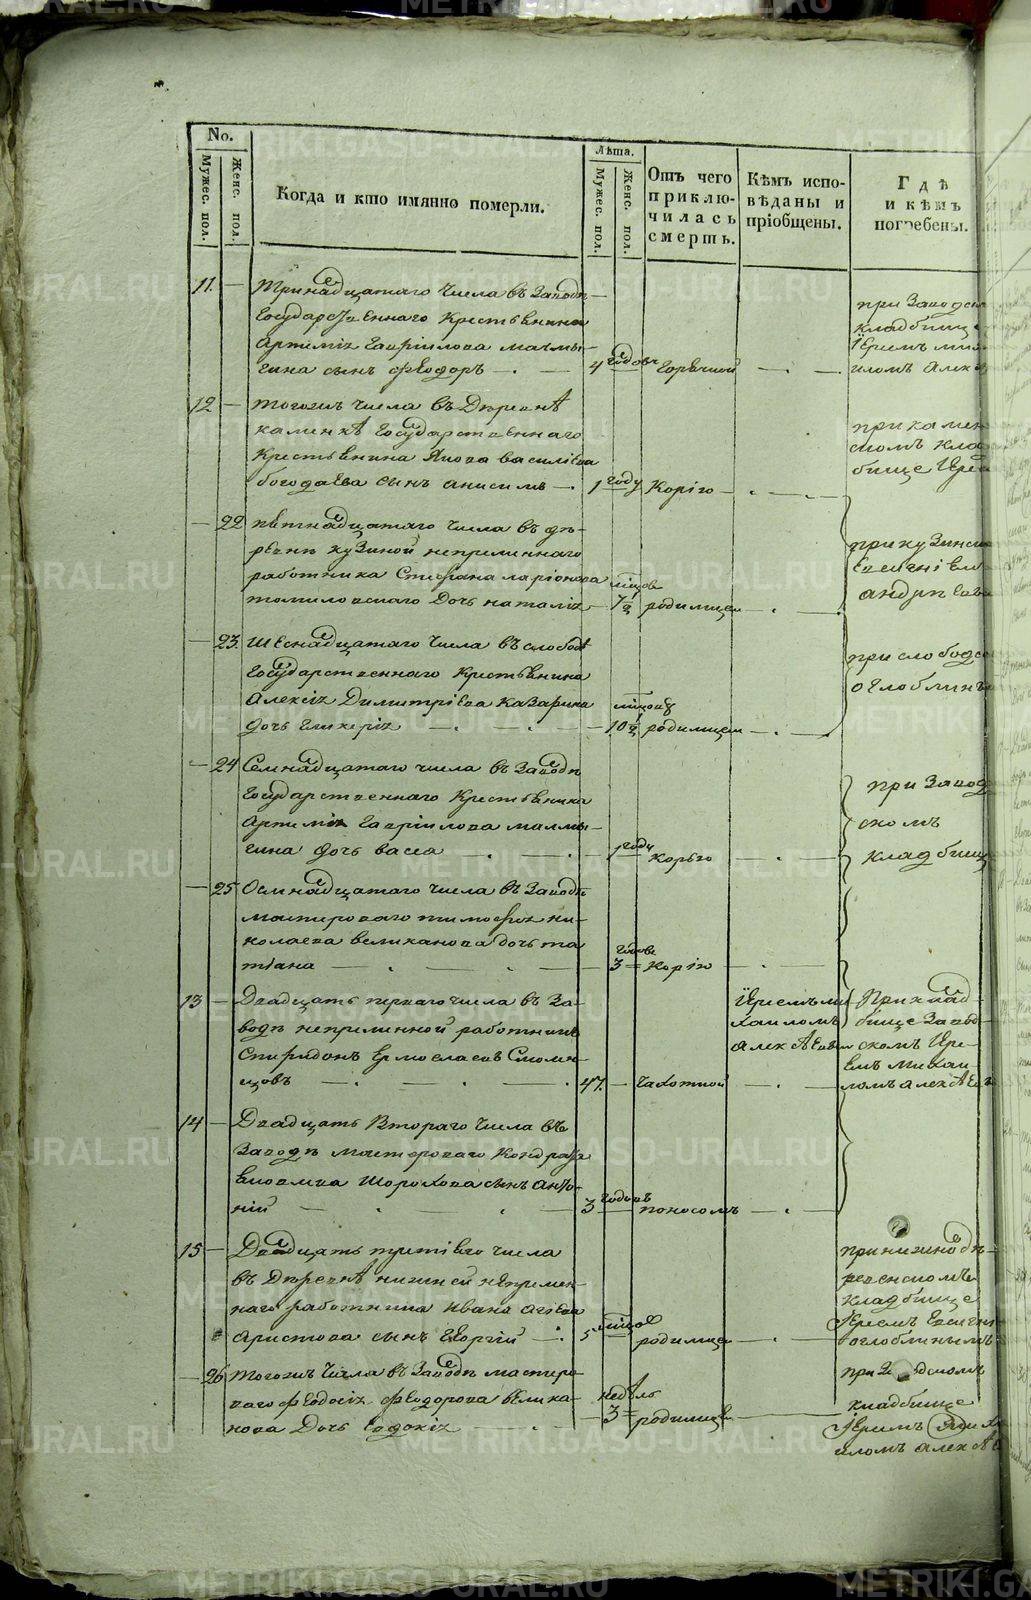 No.
Мужес. пол.
Женс. пол.
Когда и кто имянно померли.
Лѣта.
Мужес. пол.
Женс. пол.
Отъ чего
приклю-
чилась
смерть.
Кѣмъ испо-
вѣданы и
пріобщены.
Гдѣ
и кѣмъ
погребены.
11. — Тринадцатаго числа въ Заводѣ
Государственнаго Крестьянина
Артемія Гавріилова
сынъ Феодоръ — 4 годовъ Горячкой
при Заводск
кладбище
Іереемъ Ми
иломъ Алекс
12 — тогожъ числа въ Деревнѣ
каменкѣ Государственнаго
Крестьянина Якова василіева
богодаева сынъ анисимъ — 1 году Коріго
при камен
скомъ кла
бище Іере
— 22 пятнадцатаго числа въ де-
ревнѣ кузиной непременнаго
работника Стефана ларіонова
томиловскаго Дочь наталія — 7 родимцем
при кузинск
Евгеніем
андрѣева
— 23. шеснадцатаго числа въ слободѣ
Государственнаго Крестьянина
Алексія Димитріева Казарина
дочь гликерія — 10 родимцем
при слободс
оглоблинъ
— 24 Семнадцатаго числа въ Заводѣ
Государственнаго Крестьянина
Артемія Гавріилова
дочь васса 1 году корьго
при Завод
скомъ
кладбищ
— 25 Осмнадцатаго числа въ Заводѣ
мастероваго тимофея ни-
колаева великанова дочь та-
тіана — 3 годовъ коріго
13 — Двадцать перваго числа въ За-
водѣ непременной работникъ
Спиридонъ Ермолаевъ Смолен-
цовъ — 47. — чахоткой
Іереемъ ми
хаиломъ
алексѣевым
При клад-
бище Заво-
скомъ Іере-
емъ михаи-
ломъ алексѣев
14 — Двадцать Втораго числа въ
Заводѣ мастероваго Кондрат
Шорохова сынъ анто-
ній — 3 годовъ поносомъ
15 — Двадцать третіяго числа
въ Деревнѣ нижней непремен-
наго работника Ивана
Аристова сынъ Георгій — 5 родимце
при нижнодѣ-
ревенскомъ
кладбище
Іереемъ Евгені
оглоблинымъ
— 26 тогожъ числа въ Заводѣ мастеро-
ваго Феодосія Феодорова велика-
нова Дочь Евдокія недѣль 3 родимцем
при Заводскомъ
кладбище
Іереемъ Миха
иломъ алексѣе
METRIKI.GASO-URAL.RU